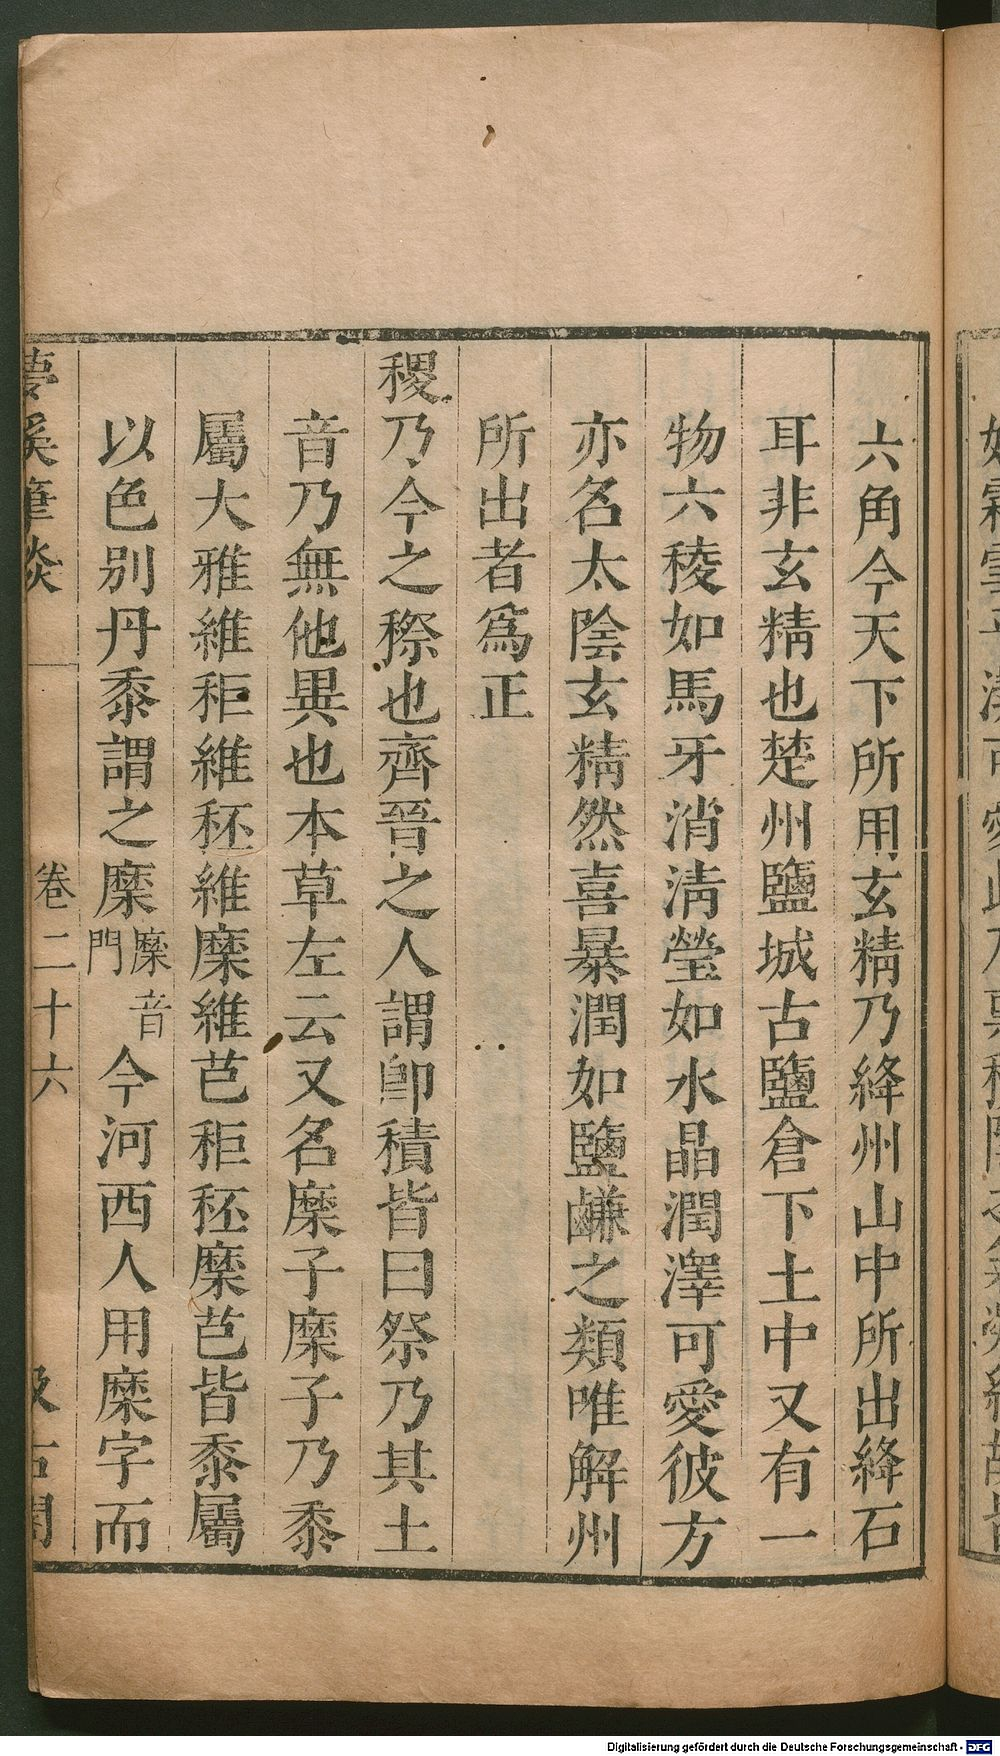 六角今天下所用玄精乃絳州山中所出絳石
耳非玄精也楚州鹽城古鹽倉下土中又有一
物六稜如馬牙消淸瑩如水晶潤澤可愛彼方
亦名太陰玄精然喜暴潤如鹽鹻之類唯解州
所出者爲正
稷乃今之穄也齊晉之人謂卽積皆曰祭乃其土
音乃無他異也本草左云又名䵚子䵚子乃黍
屬大雅維秬維秠維䵚維芑秬秠䵚芑皆黍屬
以色別丹黍謂之䵚䵚音門今河西人用䵚字而
夢溪筆談
卷二十六
汲古閣
Digitalisierung gefördert durch die Deutsche Forschungsgemeinschaft - DFG